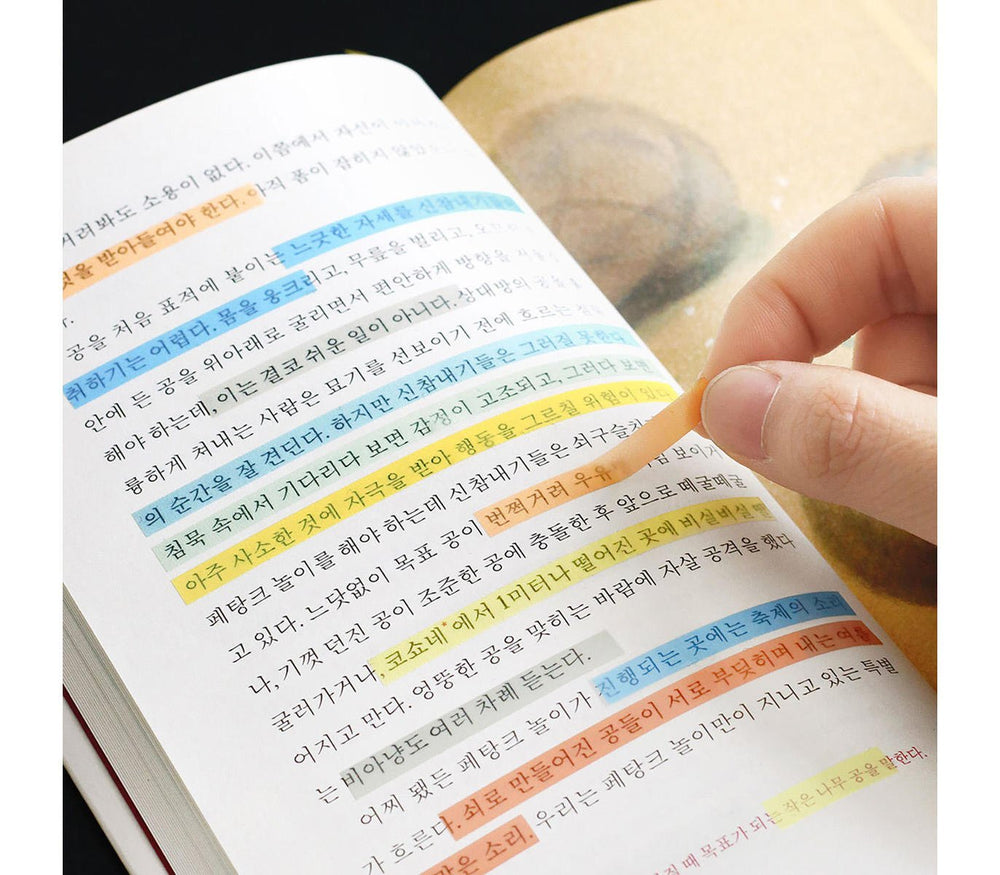 거려봐도 소용이 없다. 이쯤에서 자신이
것을 받아들여야 한다. 아직 폼이 잡히지 않았
다.
공을 처음 표적에 붙이는 느긋한 자세를 신참내기들
취하기는 어렵다. 몸을 웅크리고, 무릎을 벌리고,
안에 든 공을 위아래로 굴리면서 편안하게 방향을
해야 하는데, 이는 결코 쉬운 일이 아니다. 상대방의 공을
륭하게 쳐내는 사람은 묘기를 선보이기 전에 흐르는 침묵
의 순간을 잘 견딘다. 하지만 신참내기들은 그러질 못한다.
침묵 속에서 기다리다 보면 감정이 고조되고, 그러다 보면
아주 사소한 것에 자극을 받아 행동을 그르칠 위험이 있다.
페탕크 놀이를 해야 하는데 신참내기들은 쇠구슬치
고 있다. 느닷없이 목표 공이 번쩍거려 우유 보이거
나, 기껏 던진 공이 조준한 공에 충돌한 후 앞으로 떼굴떼굴
굴러가거나, 코쇼네*에서 1미터나 떨어진 곳에 비실비실
어지고 만다. 엉뚱한 공을 맞히는 바람에 자살 공격을 했다
는 비아냥도 여러 차례 듣는다.
어찌 됐든 페탕크 놀이가 진행되는 곳에는 축제의 소리
가 흐른다. 쇠로 만들어진 공들이 서로 부딪히며 내는 여름
같은 소리. 우리는 페탕크 놀이만이 지니고 있는 특별
질 때 목표가 되는 작은 나무 공을 말한다.